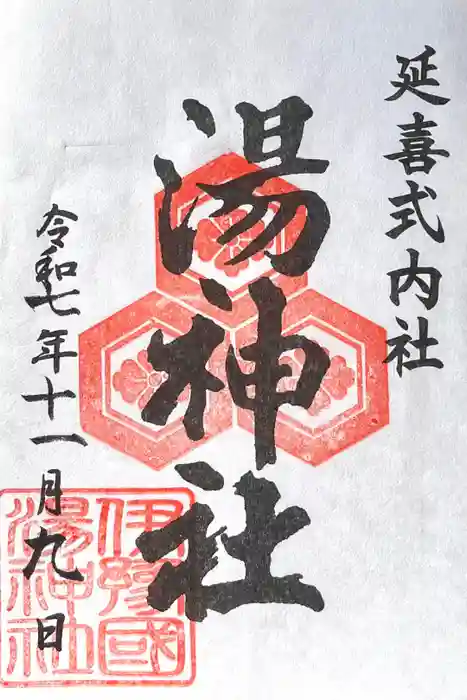 延喜式内社
湯神社
令和七年十一月九日
伊豫國
湯神社